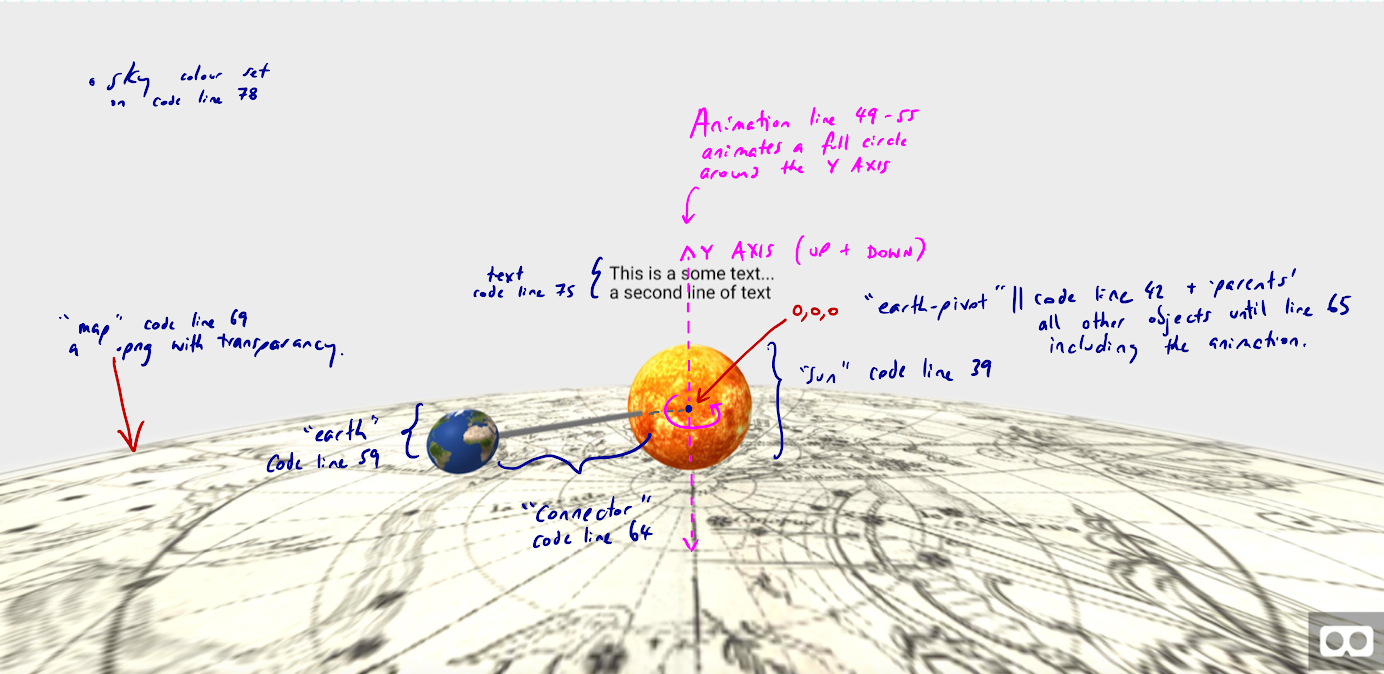 • sky colour set
on code line 78
Animation line 49-55
animates a full circle
around the Y AXIS
Y AXIS (UP + DOWN)
text
code line 75
This is a some text...
a second line of text
0,0,0
"earth-pivot" || code line 42 + 'parents'
all other objects until line 65
including the animation.
"map" code line 69
a .png with transparancy.
"sun" code line 39
"earth"
code line 59
"connector"
code line 64